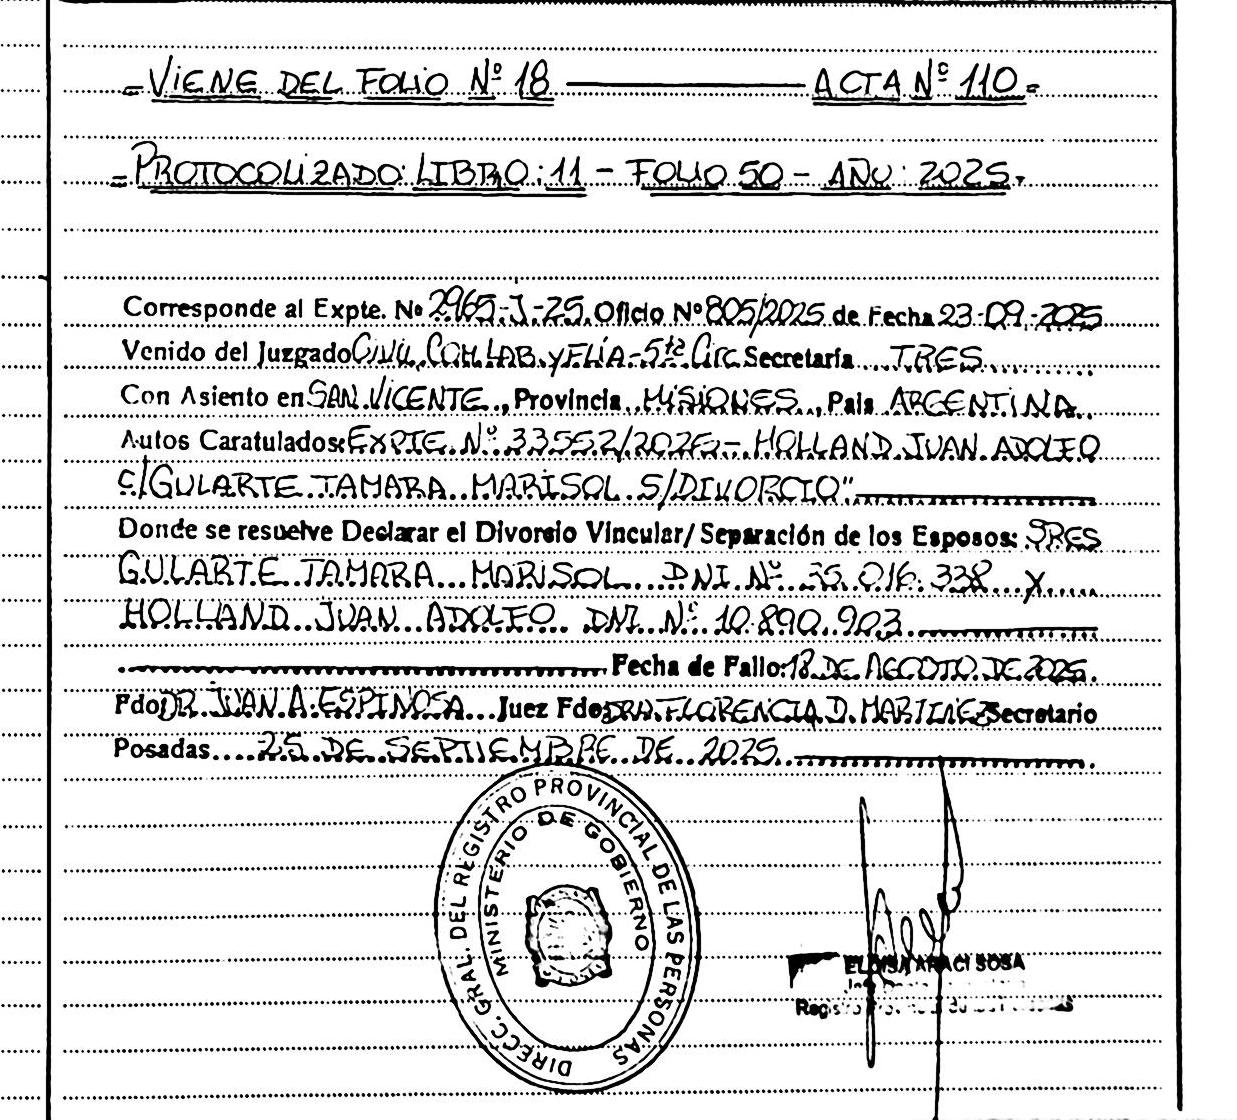 = VIENE DEL FOLIO Nº 18 ——— ACTA Nº 110 =
= PROTOCOLIZADO: LIBRO: 11 - FOLIO 50 - AÑO: 2025.
Corresponde al Expte. Nº 2965-J-25. Oficio Nº 805/2025 de Fecha 23-09-2025
Venido del Juzgado CIVIL, COM. LAB. y FLIA-5ta Circ. Secretaría TRES
Con Asiento en SAN VICENTE, Provincia MISIONES, Pais ARGENTINA.
Autos Caratulados: EXPTE. Nº 33552/2025 - HOLLAND JUAN ADOLFO
C/GULARTE TAMARA MARISOL S/DIVORCIO"
Donde se resuelve Declarar el Divorsio Vincular/ Separación de los Esposos: SRES
GULARTE TAMARA MARISOL DNI Nº 35.016.338 y
HOLLAND JUAN ADOLFO DNI Nº 10.890.903
Fecha de Fallo: 18 DE AGOSTO DE 2025.
Fdo DR. JUAN A. ESPINOSA Juez Fdo DRA. FLORENCIA D. MARTINEZ Secretario
Posadas 25 DE SEPTIEMBRE DE 2025
DIRECC. GRAL. DEL REGISTRO PROVINCIAL DE LAS PERSONAS
MINISTERIO DE GOBIERNO
ELOISA ARACI SOSA
Registro Provincial de las Personas